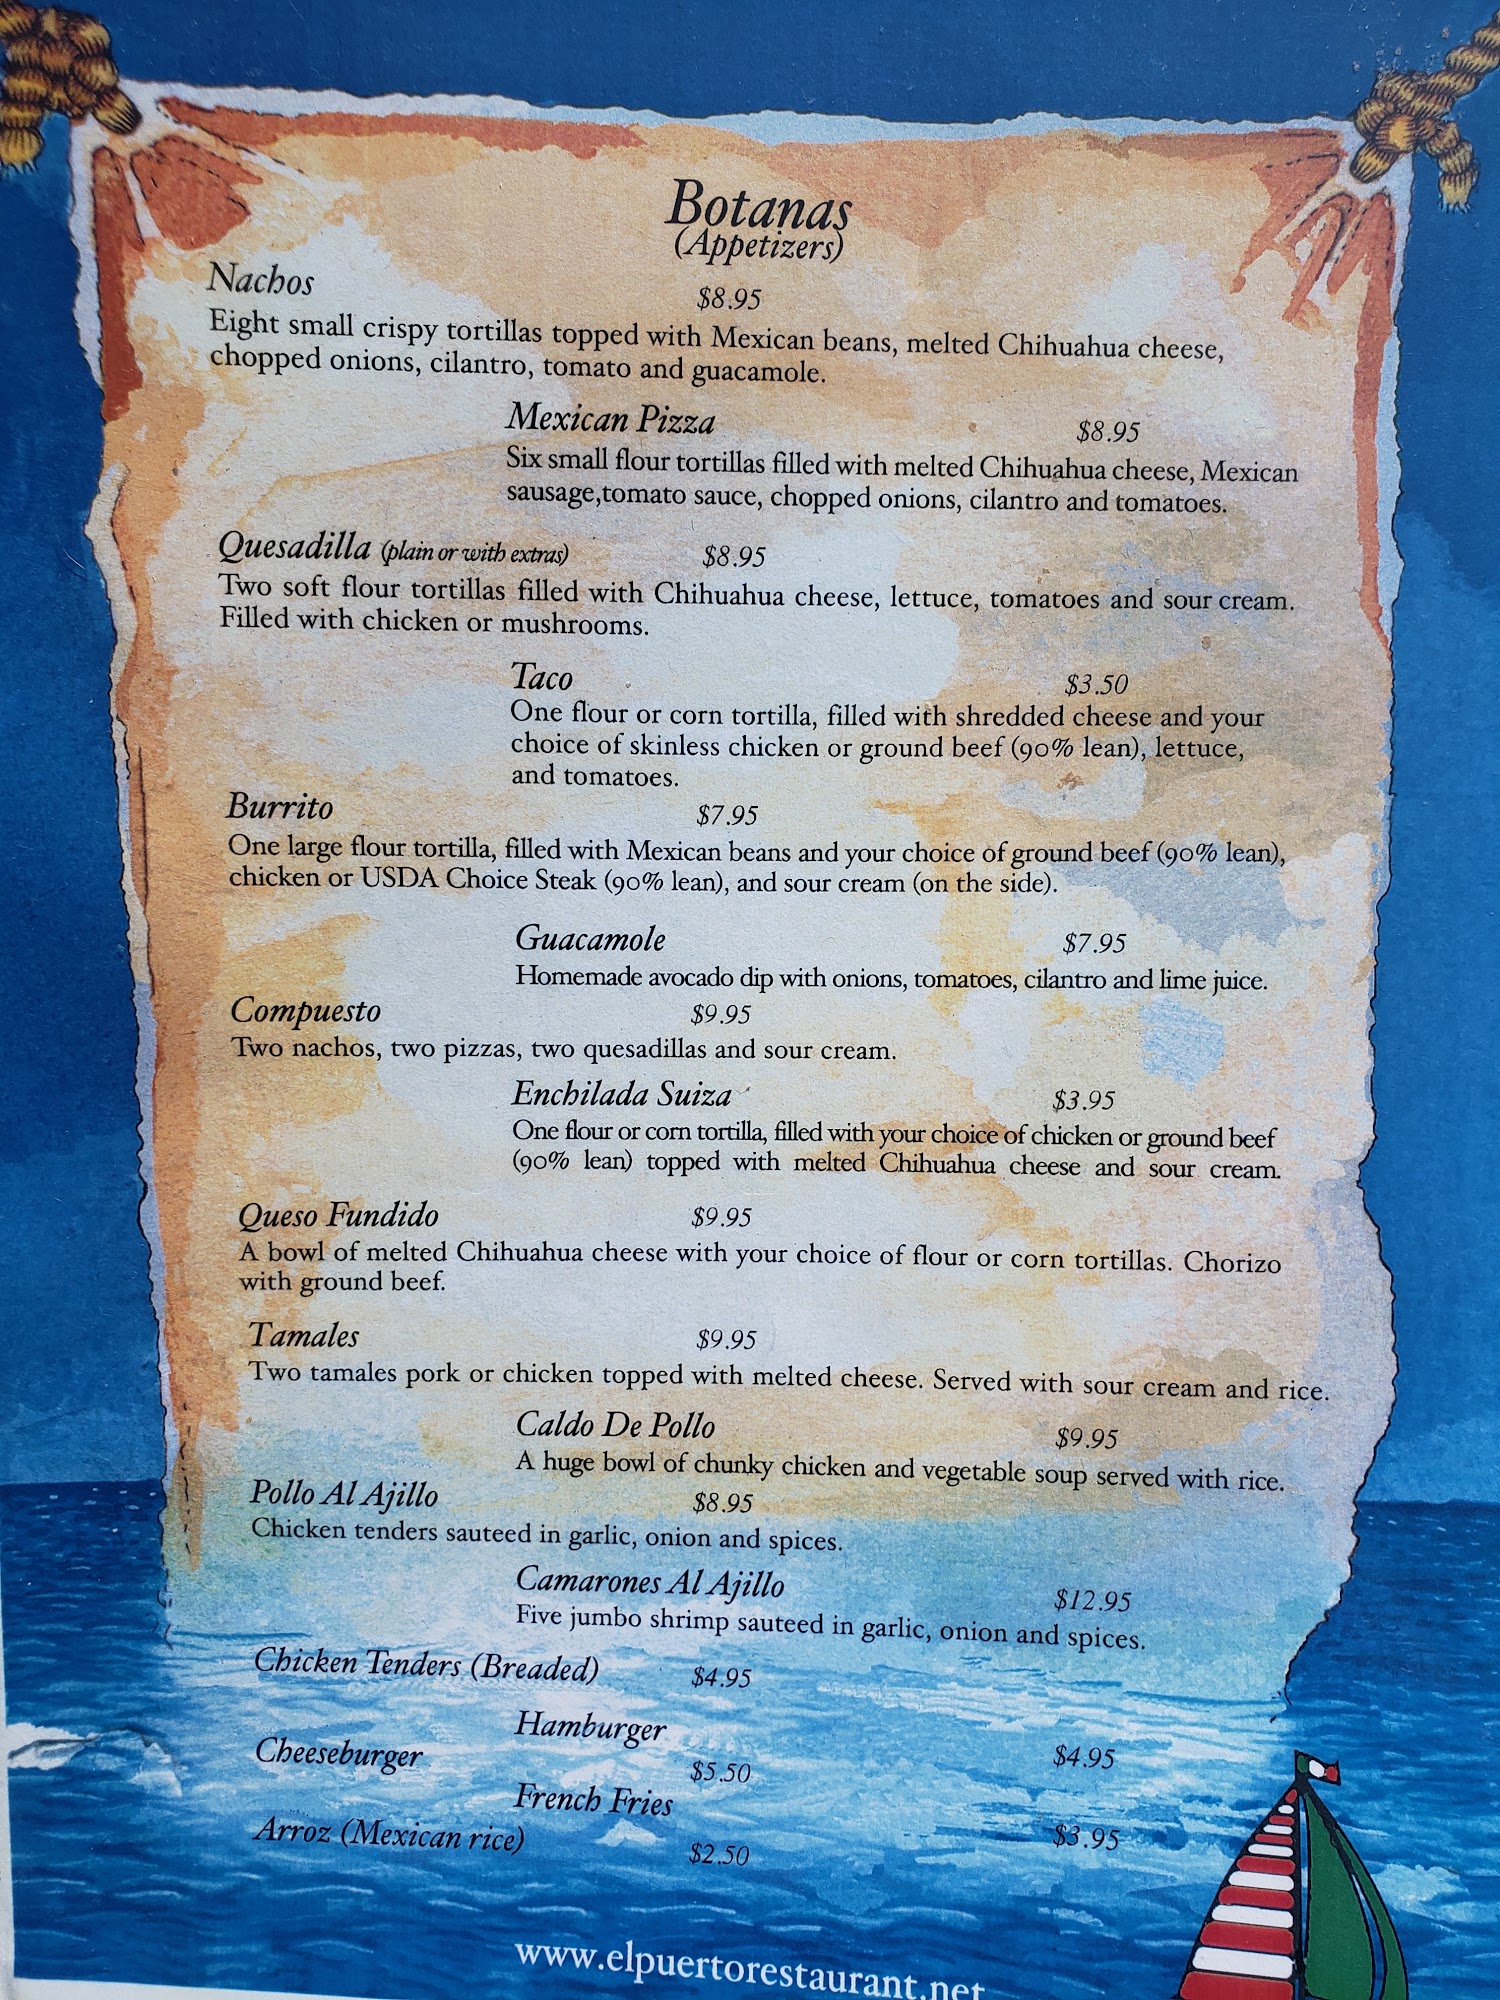 Botanas
(Appetizers)
Nachos $8.95
Eight small crispy tortillas topped with Mexican beans, melted Chihuahua cheese,
chopped onions, cilantro, tomato and guacamole.
Mexican Pizza $8.95
Six small flour tortillas filled with melted Chihuahua cheese, Mexican
sausage,tomato sauce, chopped onions, cilantro and tomatoes.
Quesadilla (plain or with extras) $8.95
Two soft flour tortillas filled with Chihuahua cheese, lettuce, tomatoes and sour cream.
Filled with chicken or mushrooms.
Taco $3.50
One flour or corn tortilla, filled with shredded cheese and your
choice of skinless chicken or ground beef (90% lean), lettuce,
and tomatoes.
Burrito $7.95
One large flour tortilla, filled with Mexican beans and your choice of ground beef (90% lean),
chicken or USDA Choice Steak (90% lean), and sour cream (on the side).
Guacamole $7.95
Homemade avocado dip with onions, tomatoes, cilantro and lime juice.
Compuesto $9.95
Two nachos, two pizzas, two quesadillas and sour cream.
Enchilada Suiza $3.95
One flour or corn tortilla, filled with your choice of chicken or ground beef
(90% lean) topped with melted Chihuahua cheese and sour cream.
Queso Fundido $9.95
A bowl of melted Chihuahua cheese with your choice of flour or corn tortillas. Chorizo
with ground beef.
Tamales $9.95
Two tamales pork or chicken topped with melted cheese. Served with sour cream and rice.
Caldo De Pollo $9.95
A huge bowl of chunky chicken and vegetable soup served with rice.
Pollo Al Ajillo $8.95
Chicken tenders sauteed in garlic, onion and spices.
Camarones Al Ajillo $12.95
Five jumbo shrimp sauteed in garlic, onion and spices.
Chicken Tenders (Breaded) $4.95
Hamburger $4.95
Cheeseburger $5.50
French Fries $3.95
Arroz (Mexican rice) $2.50
www.elpuertorestaurant.net